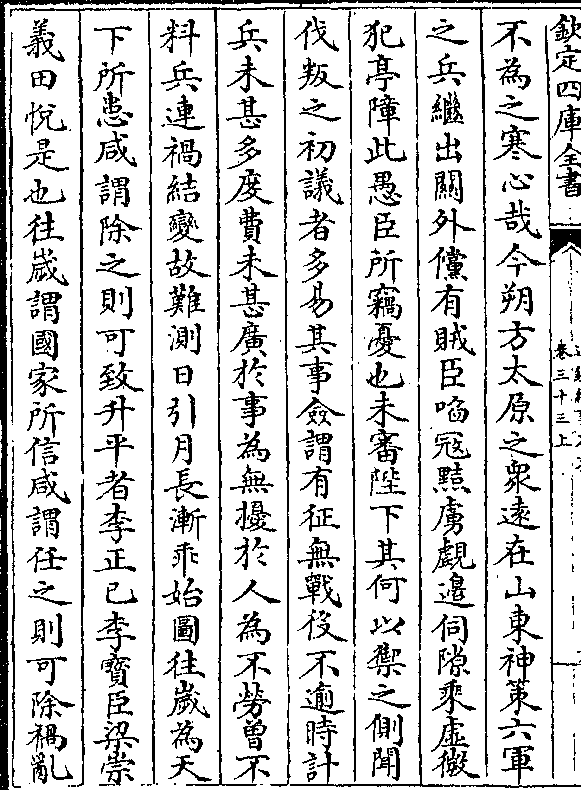 欽定四庫全書
卷三十三上
不為之寒心哉今朔方太原之衆逺在山東神策六軍
之兵繼出關外儻有賊臣啗冦黠虜覷邉伺隙乘虛微
犯亭障此愚臣所竊憂也未審陛下其何以禦之側聞
伐叛之初議者多易其事僉謂有征無戰役不逾時計
兵未甚多度費未甚廣於事為無擾於人為不勞曽不
料兵連禍結變故難測日引月長漸乖始圖往嵗為天
下所患咸謂除之則可致升平者李正己李寶臣梁崇
義田悅是也往嵗謂國家所信咸謂任之則可除禍亂